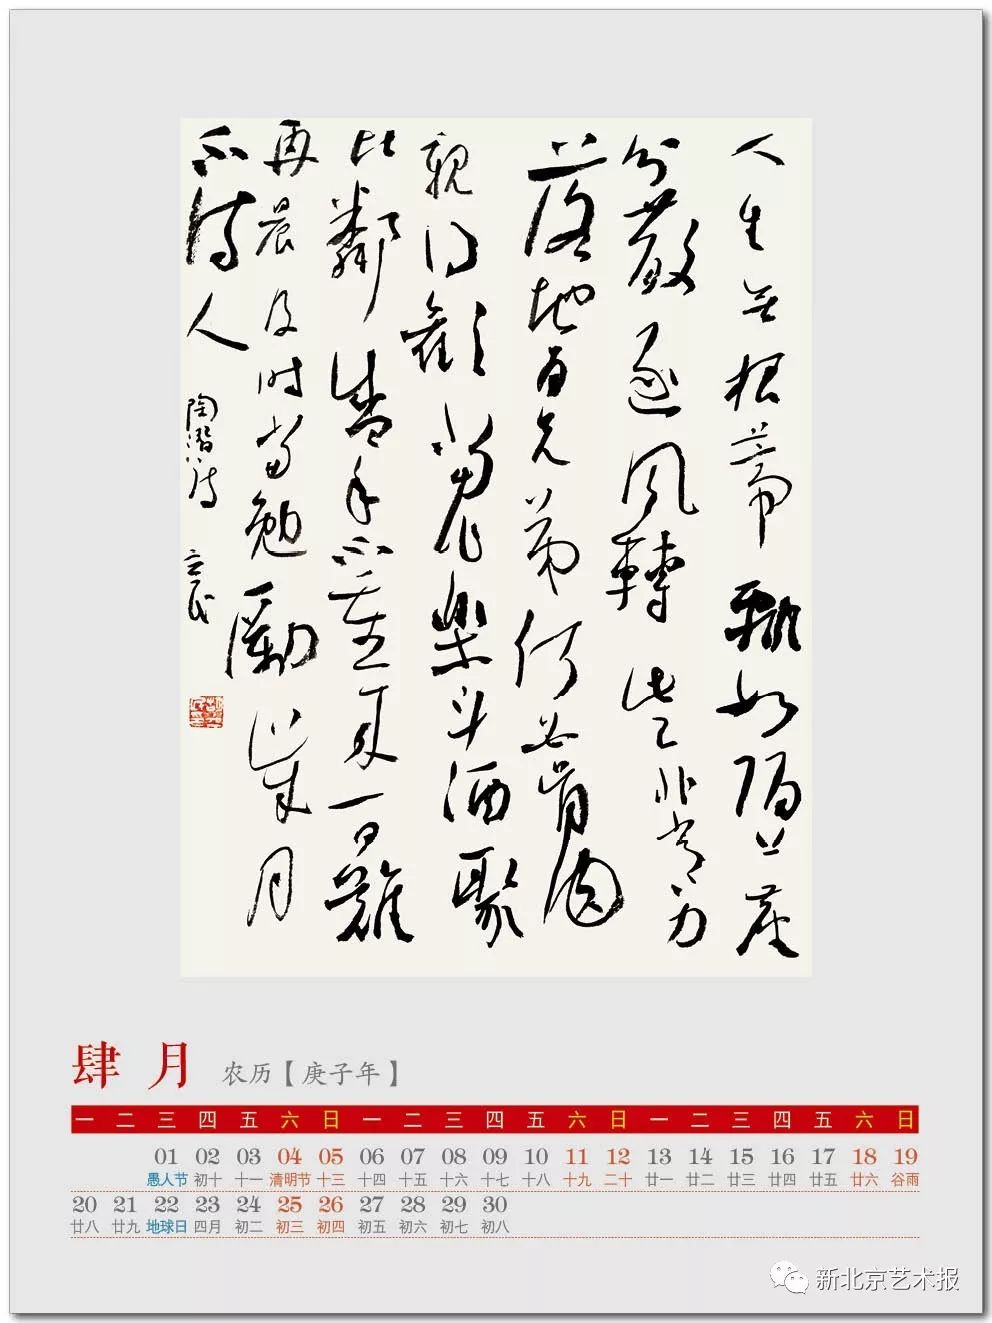 人生无根蒂飘如陌上塵
分散逐风轉此已非常身
落地为兄弟何必骨肉
親得歡當作樂斗酒聚
比鄰盛年不重来一日難
再晨及时当勉勵歲月
不待人 陶潜诗 立民
肆月 农历【庚子年】
一 二 三 四 五 六 日 一 二 三 四 五 六 日 一 二 三 四 五 六 日
01 02 03 04 05 06 07 08 09 10 11 12 13 14 15 16 17 18 19
愚人节 初十 十一 清明节 十三 十四 十五 十六 十七 十八 十九 二十 廿一 廿二 廿三 廿四 廿五 廿六 谷雨
20 21 22 23 24 25 26 27 28 29 30
廿八 廿九 地球日 四月 初二 初三 初四 初五 初六 初七 初八
新北京艺术报